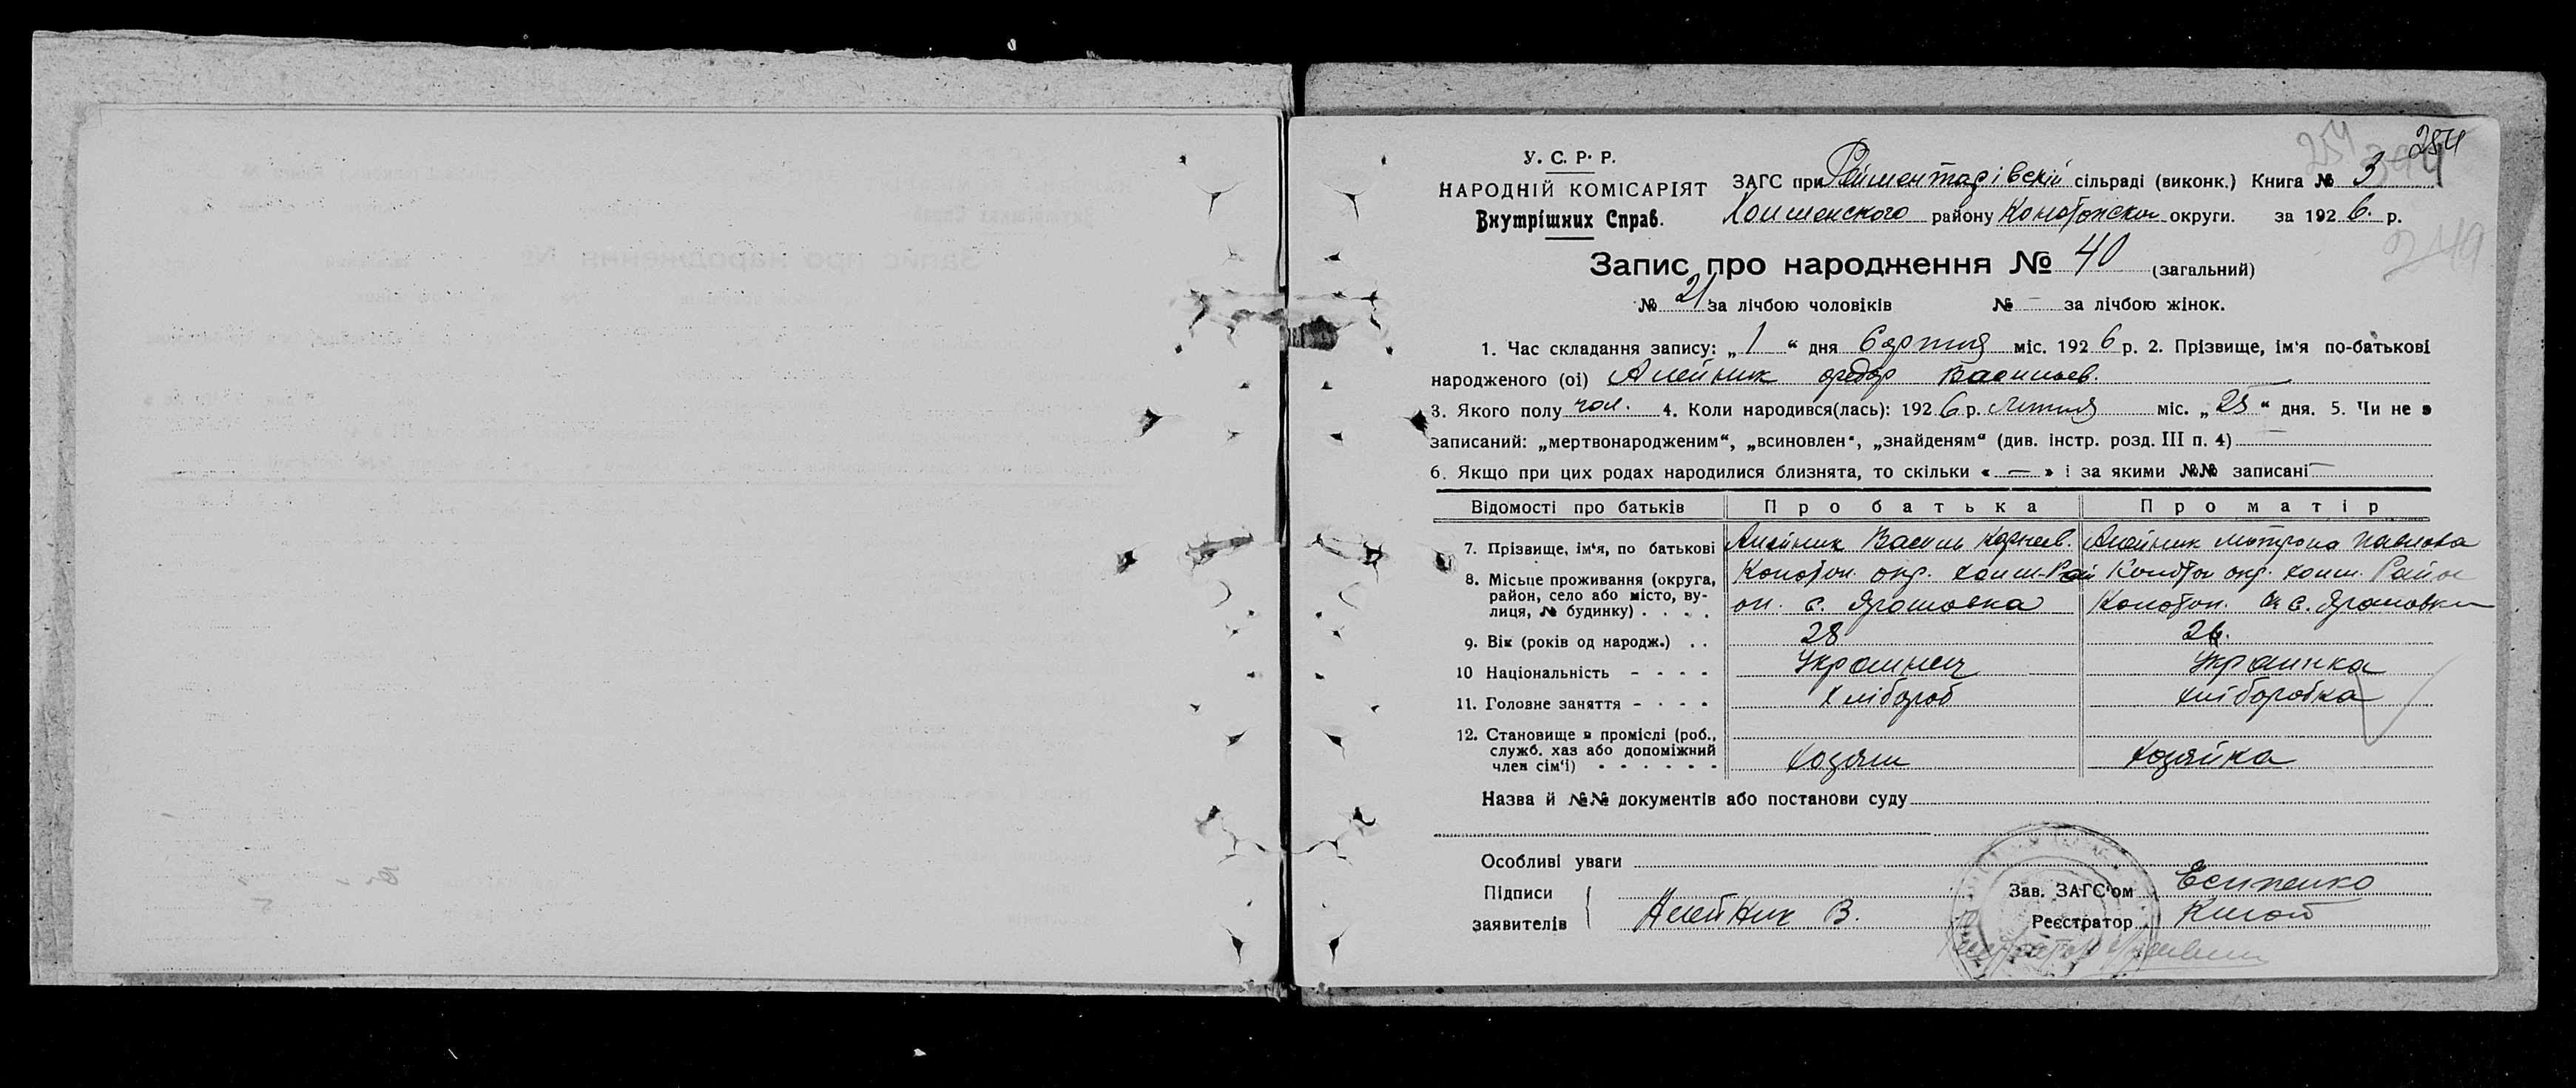 254
254
394
У. С. Р. Р.
НАРОДНІЙ КОМІСАРІЯТ
Внутрішних Справ.
ЗАГС при Рейментарівскій сільраді (виконк.) Книга № 3
району Конотопской округи. за 1926. р.
249
Запис про народження № 40 (загальний)
№ 21 за лічбою чоловіків № — за лічбою жінок.
1. Час складання запису: „ 1 “ дня Серпня міс. 1926 р. 2. Прізвище, ім'я по-батькові
народженого (ої) Алейник Федор Васильев.
3. Якого полу чол. 4. Коли народився(лась): 1926 р. Липня міс. „ 25 “ дня. 5. Чи не є
записаний: „мертвонародженим“, „всиновлен“, „знайденям“ (див. інстр. розд. III п. 4)
6. Якщо при цих родах народилися близнята, то скільки « — » і за якими №№ записані —
Відомості про батьків Про батька Про матір
7. Прізвище, ім'я, по батькові Алейник Василь Карнеев. Алейник Мотрона Павлова
8. Місьце проживання (округа, Конотоп. окр. Рай Конотоп окр. Район
район, село або місто, ву- он. с. Ярошовка Конотоп. с. Ярошовки
лиця, № будинку) . . . .
9. Вік (років од народж.) . . 28 26.
10 Національність - - - - Украинец Украинка
11. Головне заняття - - - - Хлібороб хліборобка
12. Становище в промислі (роб.,
служб. хаз або допоміжний
член сім'ї) - - - - - - хозяин хозяйка
Назва й №№ документів або постанови суду
Особливі уваги
Підписи Зав. ЗАГС'ом Есипенко
заявителів Алейник В. Реєстратор